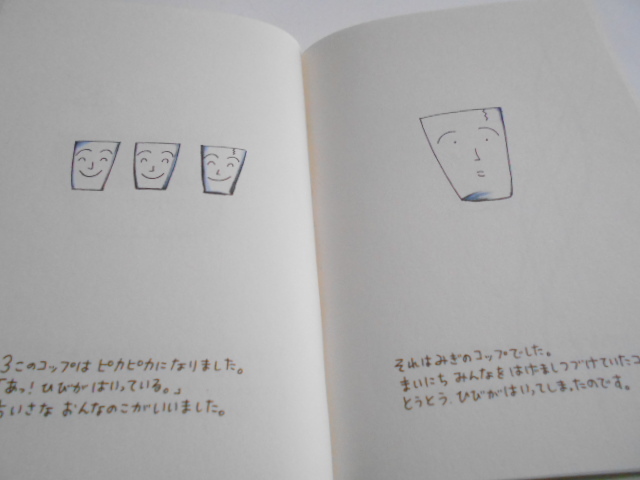 3このコップは ピカピカになりました。
「あっ！ひびがはいっている。」
ちいさな おんなのこがいいました。
それはみぎのコップでした。
まいにち みんなを はげましつづけていたコ
とうとう、ひびがはいってしまったのです。